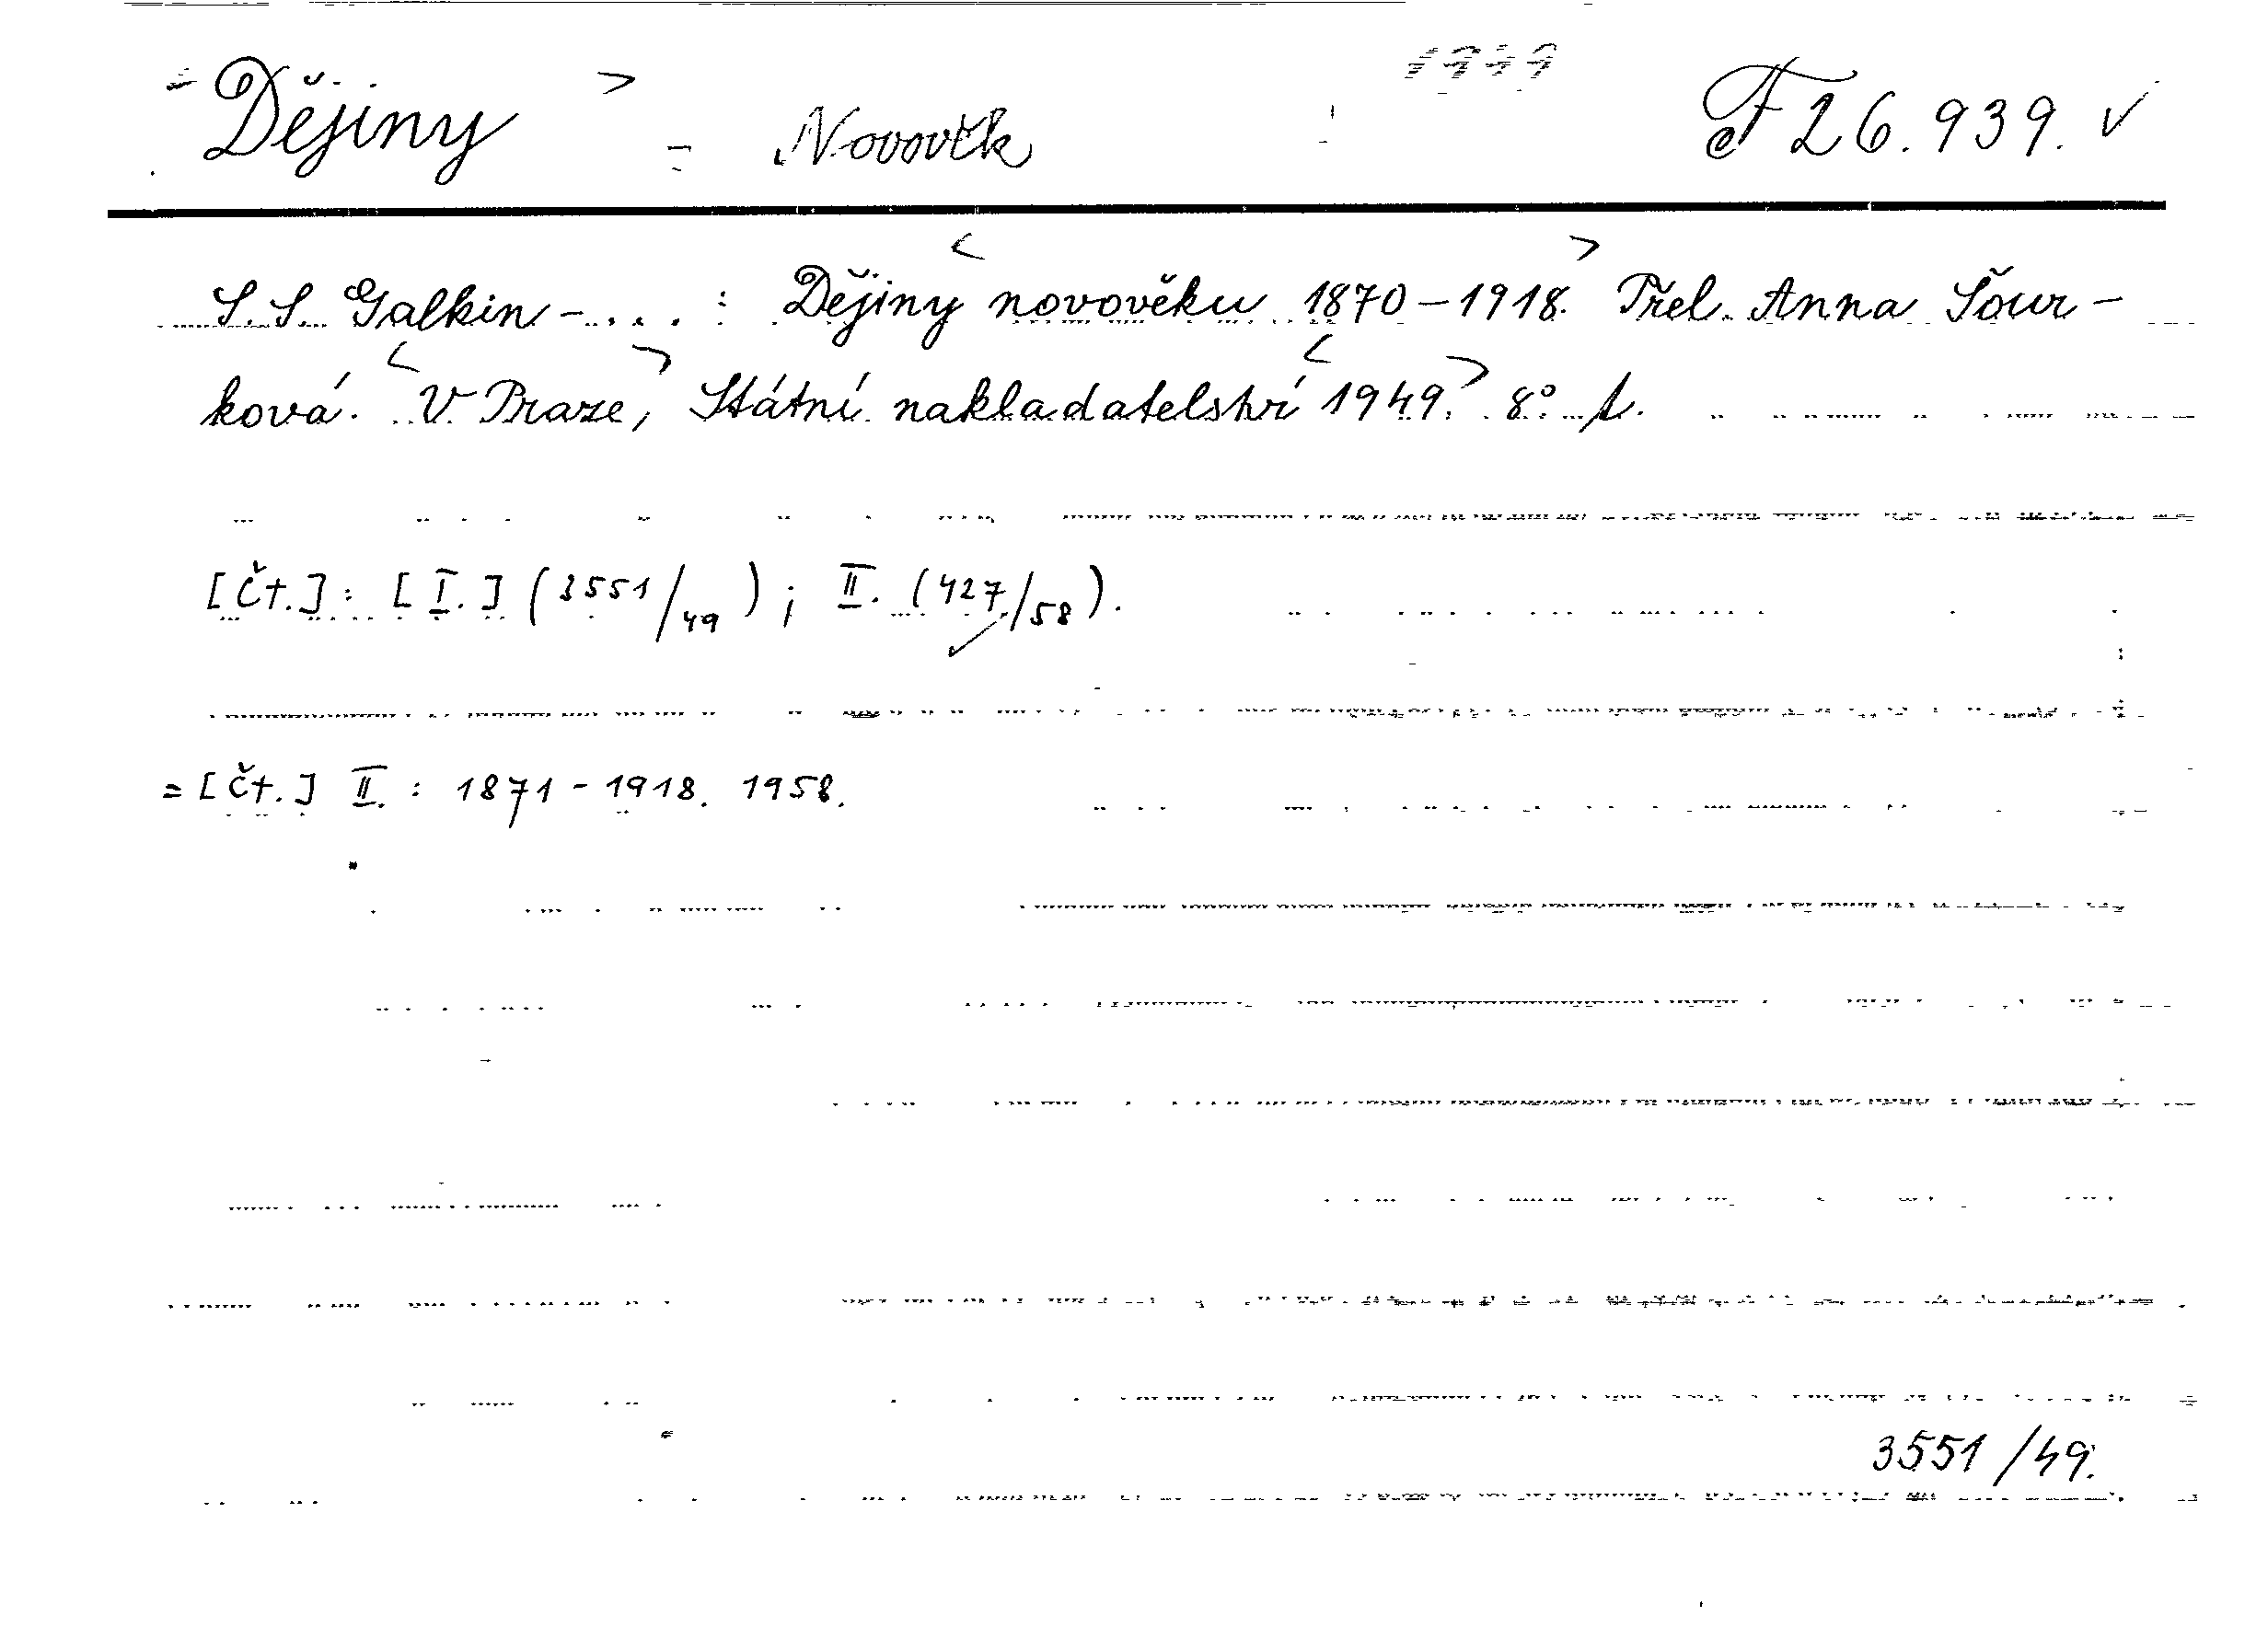 Dějiny > = Novověk 1949 F 26.939. ✓
S. S. Galkin - ... : Dějiny < novověku 1870-1918. > Přel. Anna Šour-
ková. < V Praze, > Státní nakladatelství < 1949. > 8° A.
[Čt.]: [I.] (3551/49); II. (427/58).
= [Čt.] II. : 1871-1918. 1958.
3551/49.